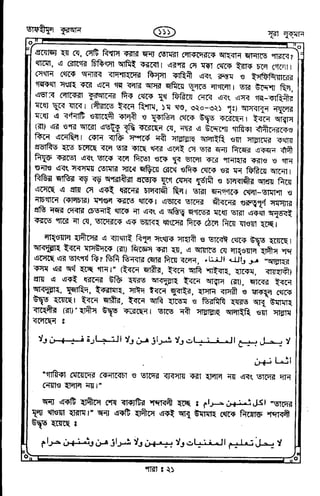 তাফহীমুল কুরআন
১১১
সূরা লুকমান
প্রয়োজন হয় যে, সেটি বিশ্বাস করার জন্য তোমরা লোকদেরকে আহবান জানাতে পারবে।
থামো, এ রোগের চিকিৎসা আমিই করবো। এরপর সে মক্কা থেকে ইরাক চলে গেলো।
সেখান থেকে অনারব বাদশাহদের কিস্সা কাহিনী এবং রুস্তম ও ইসফিন্দিয়ারের
গল্পকথা সংগ্রহ করে এনে গল্প বলার আসর জমিয়ে তুলতে লাগলো। তার উদ্দেশ্য ছিল,
এভাবে লোকেরা কুরআনের দিক থেকে মুখ ফিরিয়ে নেবে এবং এসব গল্প-কাহিনীর
মধ্যে ডুবে যাবে। (সীরাতে ইবনে হিশাম, ১ম খণ্ড, ৩২০-৩২১ পৃঃ) আসবাবুন নুযূলের
মধ্যে এ বর্ণনাটি ওয়াহেদী কালবী ও মুকাতিল থেকে উদ্ধৃত করেছেন। ইবনে আব্বাস
(রা) এর ওপর আরো এতটুকু বৃদ্ধি করেছেন যে, নদ্বর এ উদ্দেশ্যে গায়িকা বাঁদীদেরকেও
কিনে এনেছিল। কোন ব্যক্তি সম্পর্কে নবী সাল্লাল্লাহু আলাইহি ওয়া সাল্লামের কথায়
প্রভাবিত হতে চলেছে বলে তার কাছে খবর এলেই সে তার জন্য নিজের একজন বাঁদী
নিযুক্ত করতো এবং তাকে বলে দিতো ওকে খুব ভালো করে পানাহার করাও ও গান
শুনাও এবং সবসময় তোমার সাথে জড়িয়ে রেখে ওদিক থেকে ওর মন ফিরিয়ে আনো।
বিভিন্ন জাতির বড় বড় অপরাধীরা প্রত্যেক যুগে যেসব ধূর্তামী ও চালবাজীর আশ্রয় নিয়ে
এসেছে এ প্রায় সে একই ধরনের চালবাজী ছিল। তারা জনগণকে খেল-তামাশা ও
নাচগানে (কালচার) মশগুল করতে থাকে। এভাবে তাদের জীবনের গুরুত্বপূর্ণ সমস্যার
প্রতি নজর দেবার চেতনাই থাকে না এবং এ অস্থির জগতের মধ্যে তারা একথা অনুভবই
করতে পারে না যে, তাদেরকে এক ভয়াবহ ধ্বংসের দিকে ঠেলে নিয়ে যাওয়া হচ্ছে।
লাহ্ওয়াল হাদীসের এ ব্যাখ্যাই বিপুল সংখ্যক সাহাবী ও তাবেঈ থেকে উদ্ধৃত হয়েছে।
আবদুল্লাহ ইবনে মাসউদকে (রা) জিজ্ঞেস করা হয়, এ আয়াতে যে লাহ্ওয়াল হাদীস শব্দ
এসেছে এর তাৎপর্য কি? তিনি তিনবার জোর দিয়ে বলেন, هو والله الغناء "আল্লাহর
কসম এর অর্থ হচ্ছে গান।" (ইবনে জারীর, ইবনে আবি শাইবাহ, হাকেম, বায়হাকী)
প্রায় এ একই ধরনের উক্তি হযরত আবদুল্লাহ ইবনে আব্বাস (রা), জাবের ইবনে
আবদুল্লাহ, মুজাহিদ, ইকরামাহ, সাঈদ ইবনে জুবাইর, হাসান বাসরী ও মাকহূল থেকে
উদ্ধৃত হয়েছে। ইবনে জারীর, ইবনে আবি হাতেম ও তিরমিযি হযরত আবু উমামাহ
বাহেলীর (রা) হাদীস উদ্ধৃত করেছেন। তাতে নবী সাল্লাল্লাহু আলাইহি ওয়া সাল্লাম
বলেছেন ঃ
لا يحل بيع المغنيات ولا شراؤهن ولا التجارة فيهن ولا
اثمانهن
"গায়িকা মেয়েদের কেনাবেচা ও তাদের ব্যবসায় করা হালাল নয় এবং তাদের দাম
নেয়াও হালাল নয়।"
অন্য একটি হাদীসে শেষ বাক্যটির শব্দাবলী হচ্ছে ঃ اكل ثمنهن حرام "তাদের
মূল্য খাওয়া হারাম।" অন্য একটি হাদীসে একই আবু উমামাহ থেকে নিম্নোক্ত শব্দাবলী
উদ্ধৃত হয়েছে ঃ
لا يحل تعليم المغنيات ولا بيعهن ولا شراؤهن وثمنهن حرام
পারা ঃ ২১